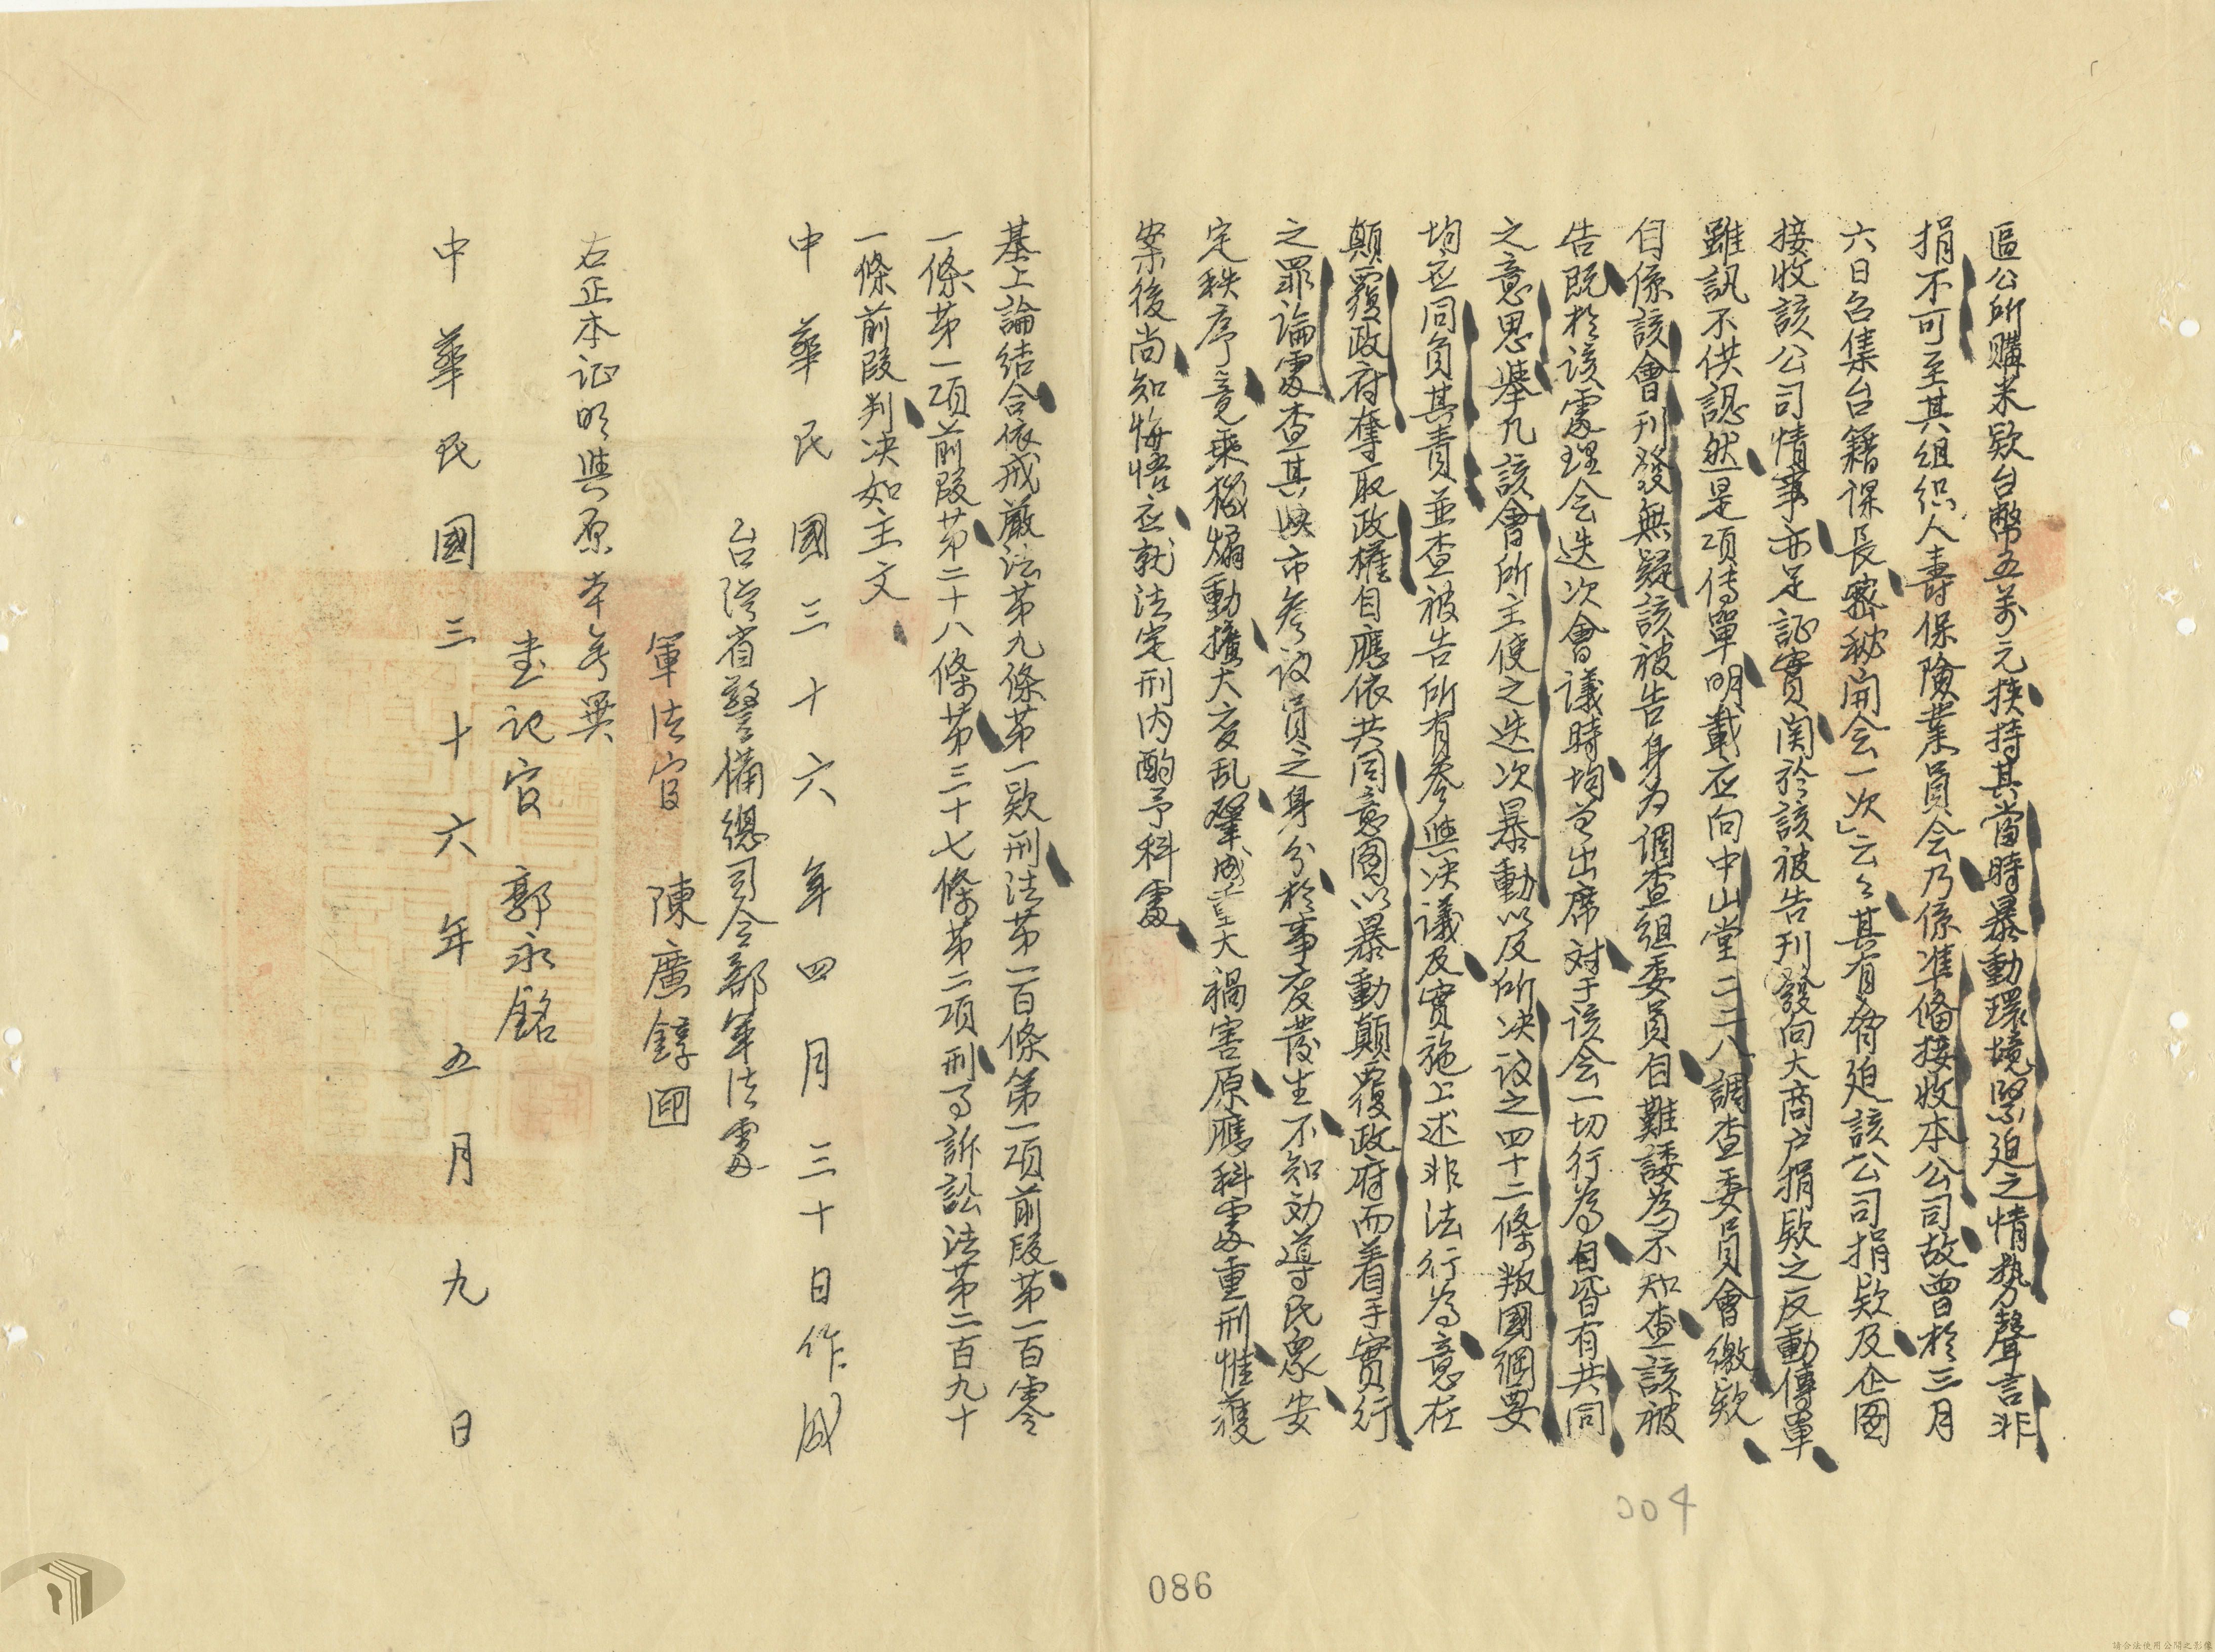 區公所購米欵台幣五萬元挾持其當時暴動環境緊迫之情勢聲言非
捐不可至其組织人壽保險業員会乃係準俻接收本公司故曾於三月
六日召集台籍課長密秘開会一次」云々其有脅廹該公司捐欵及企圖
接收該公司情事亦足証實関於該被告刊發向大商户捐欵之反動傳單
雖訊不供認然是項传單明載应向中山堂二二八調查委員會繳欵
自係該會刊發無疑該被告身为調查組委員自難諉為不知查該被
告既於該處理会迭次會議時均曾出席对于该会一切行為自皆有共同
之意思舉凡該會所主使之迭次暴動以及所决议之四十二條叛國綱要
均应同負其責並查被告所有参與决議及實施上述非法行為意在
顛覆政府奪取政權自應依共同意圖以暴動顛覆政府而着手實行
之罪论處查其以市参议員之身分於事变發生不知効導民眾安
定秩序竟乘機煽動擴大变乱肇成大禍害原應科處重刑惟獲
案後尚知悔悟应就法定刑内酌予科處
基上論结合依戒嚴法第九條第一欵刑法第一百條第一項前段第一百零
一條第一項前段第二十八條第三十七條第二項刑事訴訟法第二百九十
一條前段判决如主文
中華民國三十六年四月三十日作成
台灣省警備總司令部軍法處
軍法官 陳廣錞
右正本证明與原本无異
書记官 郭永銘
中華民國三十六年五月九日
004
086
請合法使用公開之影像